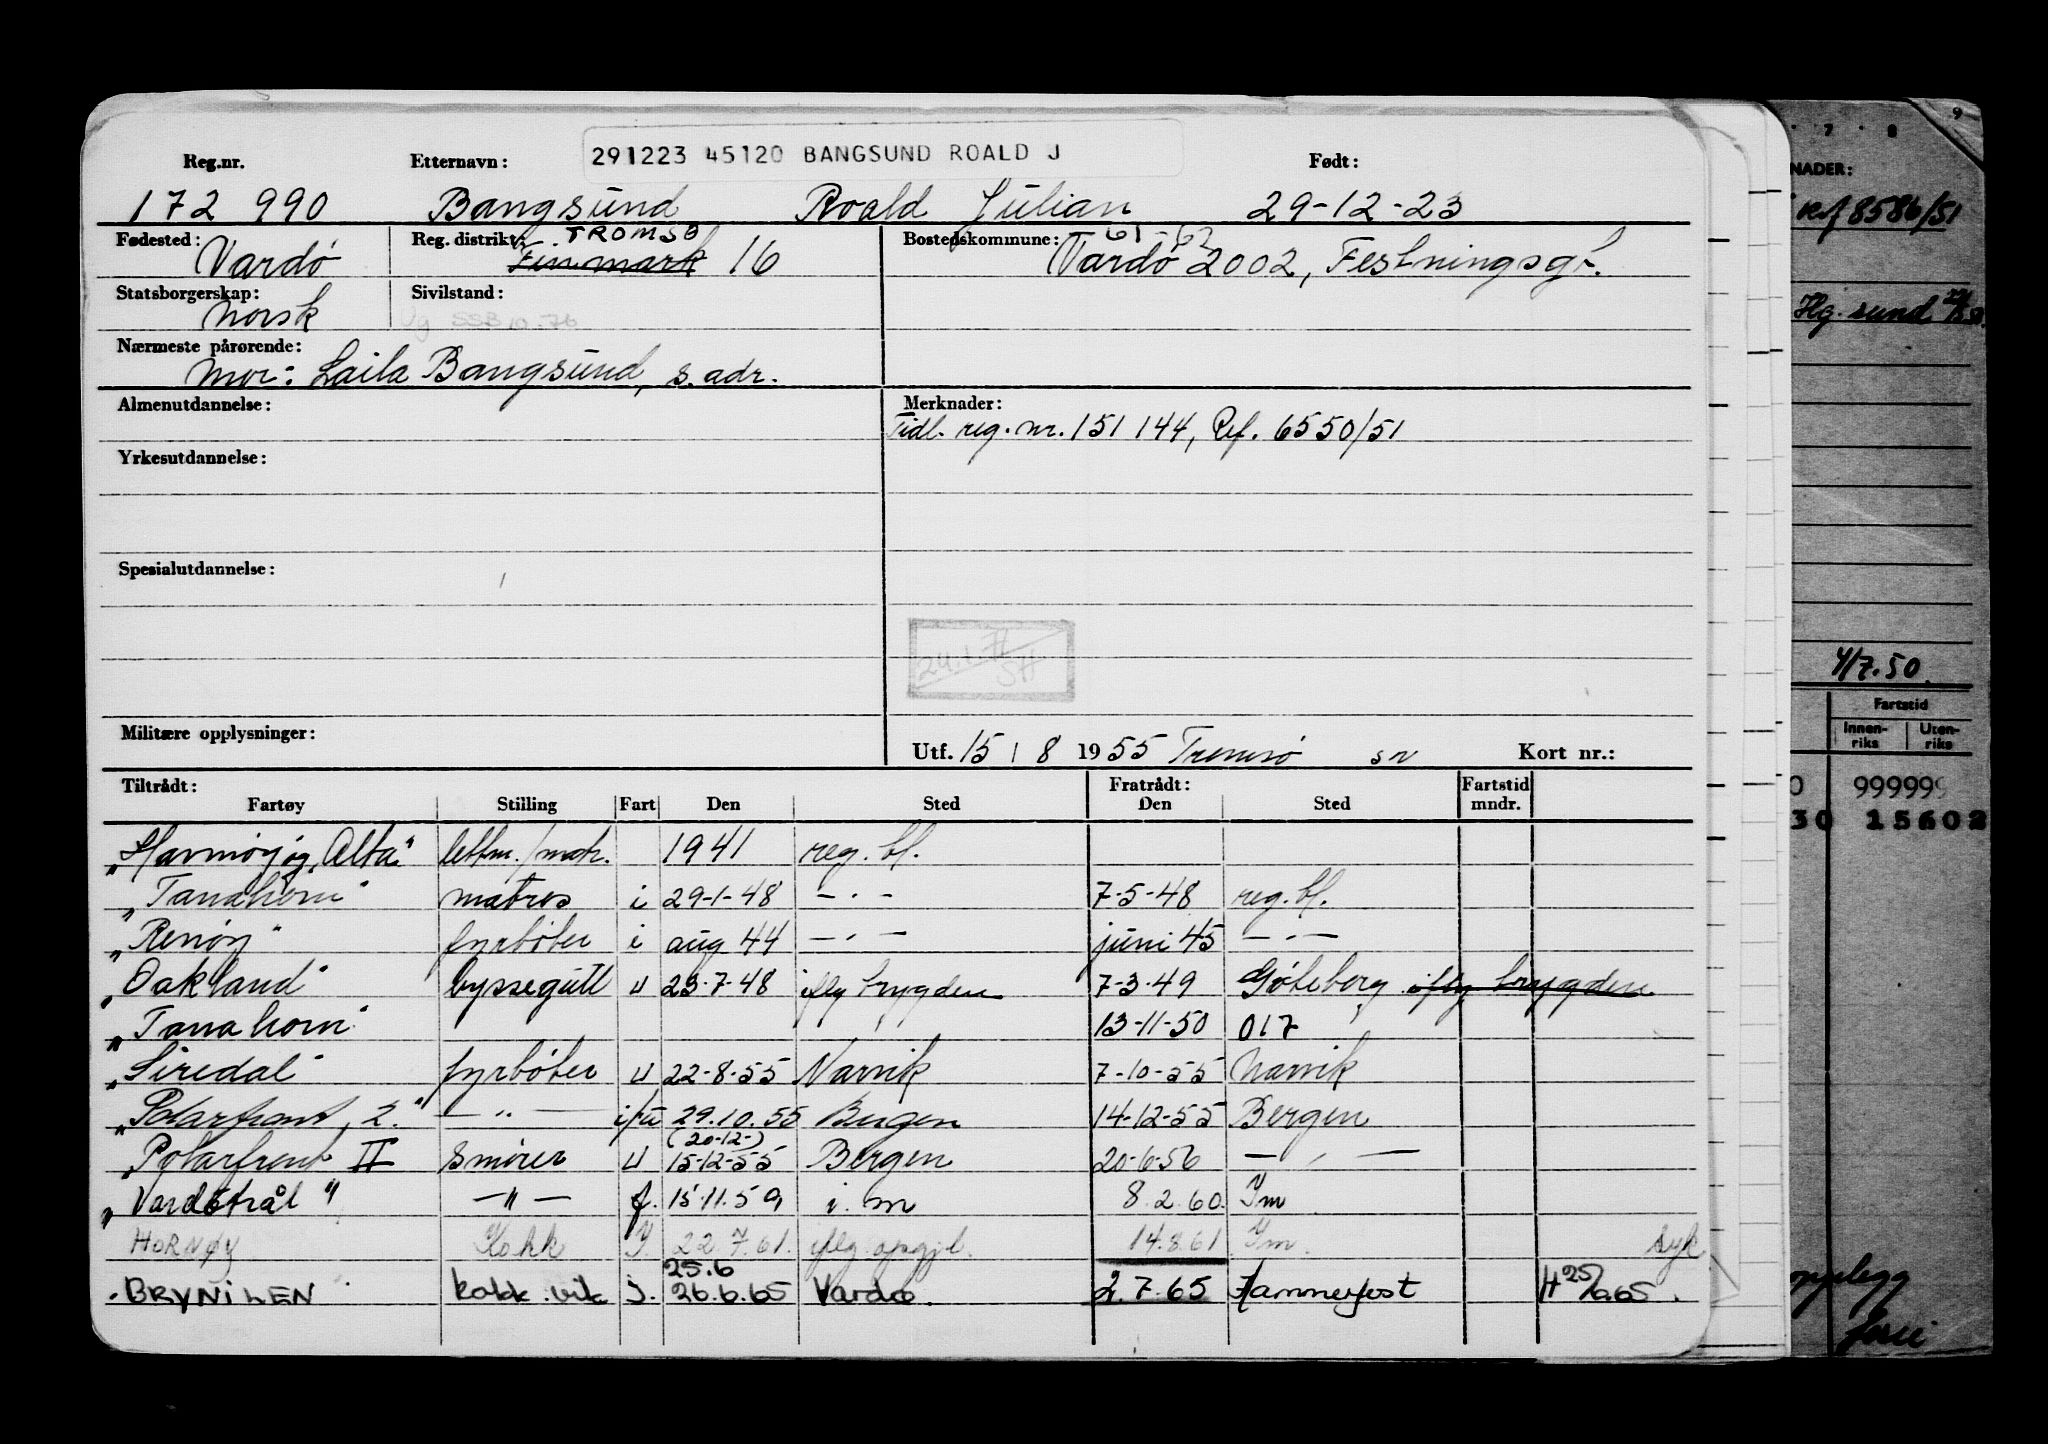 291223 45120 BANGSUND ROALD J
Reg.nr. Etternavn: Født:
172 990 Bangsund Roald Julian 29-12-23
Fødested: Vardø Reg. distrikt: TROMSØ Finnmark 16 Bostedskommune: Vardø 2002, Festningsgt.
Statsborgerskap: Norsk Sivilstand:
SSB 10.76
Nærmeste pårørende:
Mor: Laila Bangsund, s. adr.
Almenutdannelse: Merknader:
Tidl. reg. nr. 151 144, Ref. 6550/51
Yrkesutdannelse:
Spesialutdannelse:
SH
Militære opplysninger: Utf. 15 / 8 1955 Tromsø Kort nr.:
Tiltrådt: Fratrådt: Fartstid
Fartøy Stilling Fart Den Sted Den Sted mndr.
"Havnøy og Alta" lettm./matr. 1941 reg. bl.
"Tanahorn" matros i 29-1-48 — · — 7-5-48 reg. bl.
"Renøy" fyrbøter i aug 44 — · — juni 45 — · —
"Oakland" byssegutt u 23-7-48 iflg brygden 7-3-49 Gøteborg iflg brygden
"Tanahorn" 13-11-50 017
"Siredal" fyrbøter u 22-8-55 Narvik 7-10-55 Narvik
"Polarfront, 2." — " — i/u 29.10.55 Bergen 14-12-55 Bergen
(20-12-)
"Polarfront II smører u 15-12-55 Bergen 20-6-56 — , —
"Vardøtrål" — " — f. 15.11.59 i. m 8.2.60. Im
HORNØY Kokk I. 22.7.61. iflg. opgj. 14.8.61 Im. syk
25.6
BRYNILEN kokk. vik J. 26.6.65 Vardø. 2.7.65 Hammerfest H 25/6.65.
7 8 9
NADER:
ref 8586/51
Hg. sund
4/7.50
Fartstid
Innen-riks Uten-riks
0 999999
30 15602
opplegg